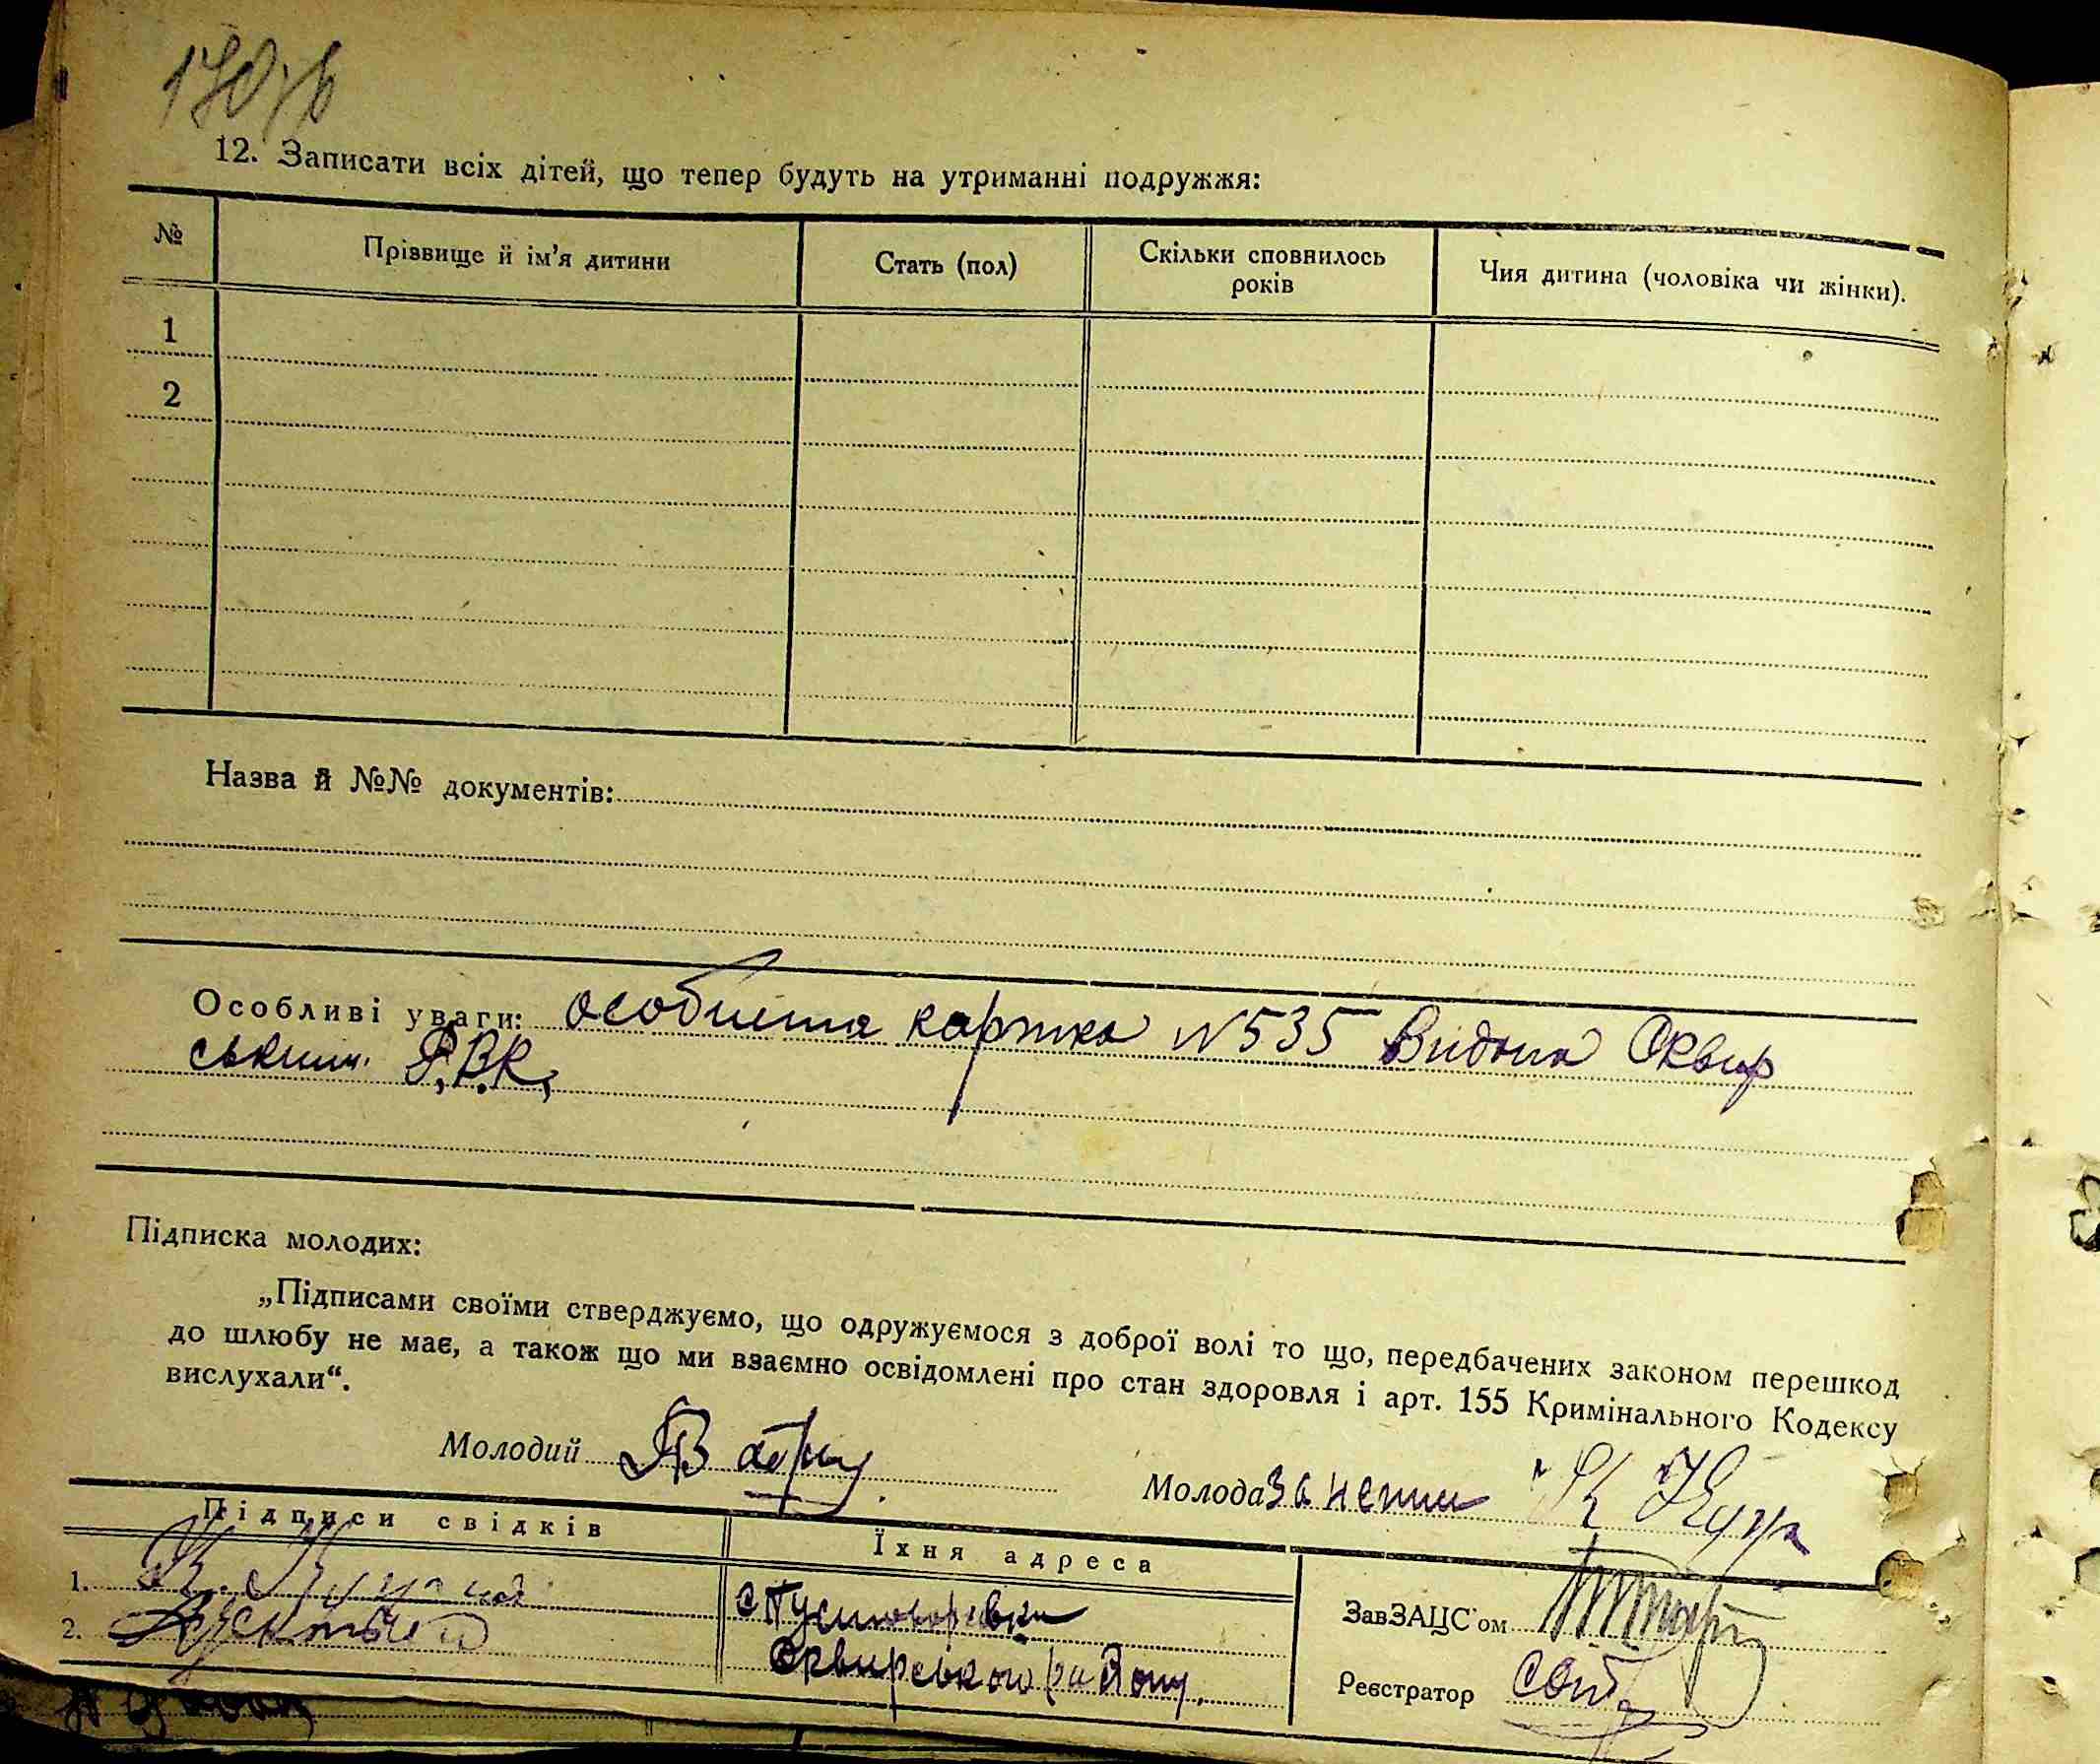 12. Записати всіх дітей, що тепер будуть на утриманні подружжя:
№ Прізвище й ім'я дитини Стать (пол) Скільки сповнилось років Чия дитина (чоловіка чи жінки).
1
2
Назва й №№ документів:
Особливі уваги: особиста картка N535 Видана Сквир
ським Р.В.К.
Підписка молодих:
„Підписами своїми стверджуємо, що одружуємося з доброї волі то що, передбачених законом перешкод
до шлюбу не має, а також що ми взаємно освідомлені про стан здоровля і арт. 155 Кримінального Кодексу
вислухали“.
Молодий
Молода за непись
Підписи свідків Їхня адреса
1. с Пустоворівка ЗавЗАЦС'ом
2. Сквирського району. Реєстратор